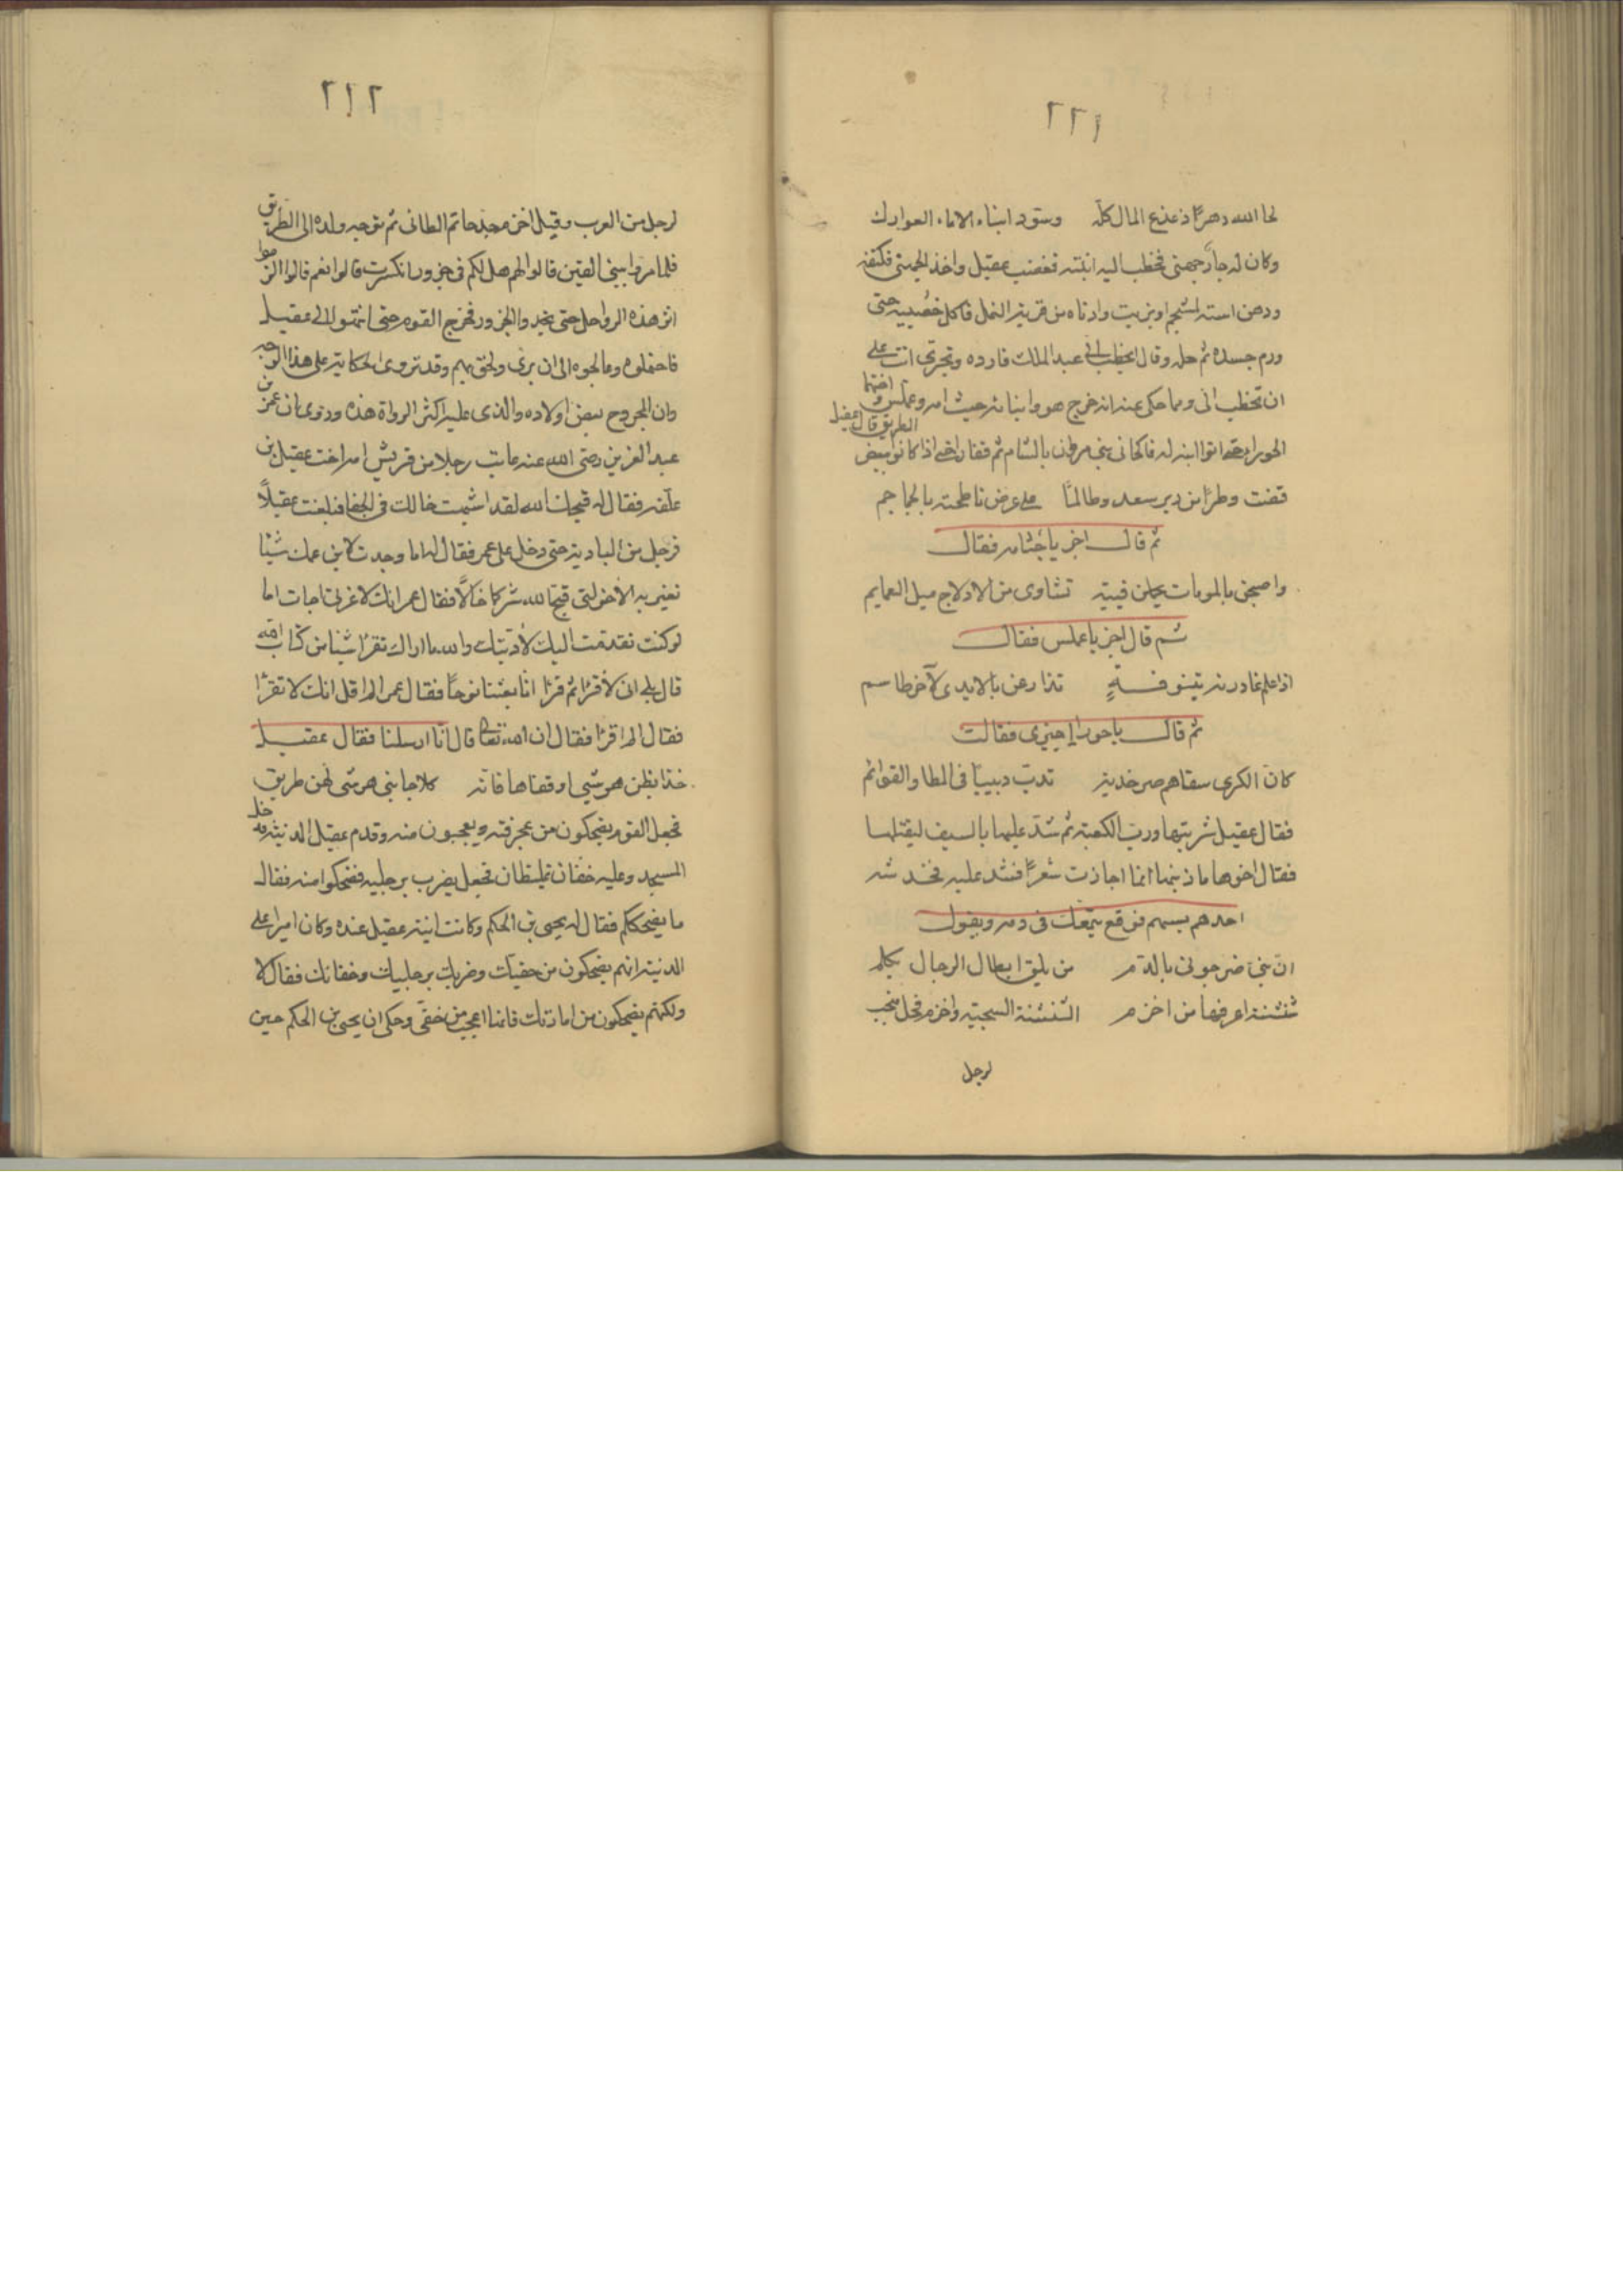 ٢٢١
لحا الله دهرًا ذعذع المال كلّه وسوّد ابناء الاماء العوارك
وكان له جارٌ جهنى فخطب اليه ابنته فغضب عقيل واخذ الجهنى فكتفه
ودهن استه بشحم او بزيت وادناه من قرية النمل فاكل خصييه حتى
ورم جسده ثم حله وقال يخطب الىّ عبد الملك فارده وتجترى انت على
ان تخطب الى ومما حكى عنه انه خرج هو وابناه جثامه وعملس واختهما
الحورا حتى اتوا ابنة له ناكحا فى بنى مروان بالشام ثم قفلوا حتى اذا كانوا ببعض الطريق قال عقيل
قضت وطرًا من دير سعد وطالما على عرض ناطحنه بالجماجم
ثم قال اجز يا جثامه فقال
واصبحن بالموماة يحملن فتية نشاوى من الادلاج ميل العمايم
ثم قال اجز يا عملس فقال
اذا علم غادرنه بتنوفــةٍ تذارعن بالايدى لآخر طاسم
ثم قال يا حورا اجيزى فقالت
كان الكرى سقاهم صرخدية تدبّ دبيبًا فى المطا والقوائم
فقال عقيل شربتها وربّ الكعبة ثم شدّ عليها بالسيف ليقتلها
فقال اخوها ما ذنبها انما اجازت شعرًا فشد عليه فخدشه
احدهم بسهم فوقع يتمعّك فى دمه ويقول
انّ بنىّ ضرجونى بالدّم من يلق ابطال الرجال يكلم
شنشنة اعرفها من اخزم الشنشنة السجية واخزم فحل منجب
لرجل
٢٢٢
لرجل من العرب وقيل اخزم جد حاتم الطائى ثم توجه ولده الى الطريق
فلما مروا ببنى القين قالوا لهم هل لكم فى جزور انكسرت قالوا نعم قالوا الزموا
اثر هذه الرواحل حتى تجدوا الجزور فخرج القوم حتى انتهوا الى عقيل
فاحتملوه وعالجوه الى ان برى ولحق بهم وقد تروى الحكاية على هذا الوجه
وان المجروح بعض اولاده والذى عليه اكثر الرواة هذه وروى ان عمر بن
عبد العزيز رضى الله عنه عاتب رجلا من قريش امه اخت عقيل بن
علّفه فقال له قبحك الله لقد اشبهت خالك فى الجفا فبلغت عقيلاً
فرحل من البادية حتى دخل على عمر فقال له اما وجدت لابن عمك شيئا
تعيره به الا خولتى قبح الله شركما خالًا فقال عمر انك لاعرابى جاف اما
لو كنت تقدمت اليك لأدّبتك والله ما اراك تقرا شيئا من كتاب الله
قال بلى انى لأقرا ثم قرا انا بعثنا نوحًا فقال عمر الم اقل انك لا تقرا
فقال الم اقرا فقال ان الله تعالى قال انّا ارسلنا فقال عقيل
خذا بطن هرشى او قفاها فانه كلا جانبى هرشى لهن طريق
فجعل القوم يضحكون من عجرفته ويعجبون منه وقدم عقيل المدينة فدخل
المسجد وعليه خفّان غليظان فجعل يضرب برجليه فضحكوا منه فقال
ما يضحككم فقال له يحيى بن الحكم وكانت ابنة عقيل عنده وكان اميرا على
المدينة انهم يضحكون من خفيك وضربك برجليك وجفائك فقال لا
ولكنهم يضحكون من امارتك فانها اعجب من خفى وحكى ان يحيى بن الحكم حين